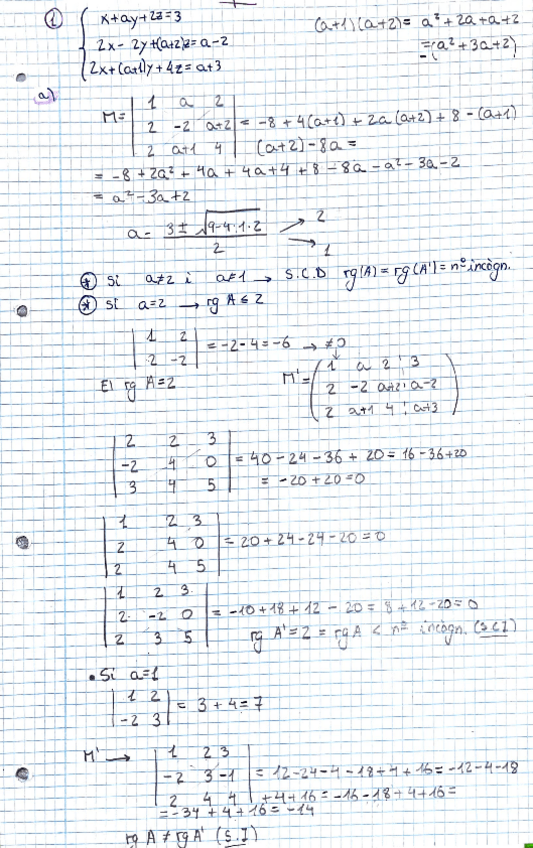 ① x+ay+2z=3
2x-2y+(a+2)z=a-2
2x+(a+1)y+4z=a+3
(a+1)(a+2)= a²+2a+a+2
=(a²+3a+2)
a)
M= | 1 a 2 |
| 2 -2 a+2 | = -8+4(a+1)+2a(a+2)+8-(a+1)
| 2 a+1 4 | (a+2)-8a=
= -8+2a²+4a+4a+4+8-8a-a²-3a-2
= a²-3a+2
a= 3±√9-4·1·2 / 2 → 2
→ 1
* Si a≠2 i a≠1 → S.C.D rg(A)=rg(A')=nº incògn.
* Si a=2 → rg A≤2
| 1 2 |
| 2 -2 | = -2-4=-6 → ≠0
El rg A=2
M'= ( 1 a 2 ¦ 3 )
( 2 -2 a+2 ¦ a-2 )
( 2 a+1 4 ¦ a+3 )
| 2 2 3 |
| -2 4 0 | = 40-24-36+20=16-36+20
| 3 4 5 | = -20+20=0
| 1 2 3 |
| 2 4 0 | = 20+24-24-20=0
| 2 4 5 |
| 1 2 3 |
| 2 -2 0 | = -10+18+12-20=8+12-20=0
| 2 3 5 | rg A'=2=rgA < nº incògn. (S.C.I)
• Si a=1
| 1 2 |
| -2 3 | = 3+4=7
M' → | 1 2 3 |
| -2 3 -1 | = 12-24-4-18+4+16=-12-4-18
| 2 4 4 | +4+16=-16-18+4+16=
=-34+4+16=-14
rg A≠rgA' (S.I)